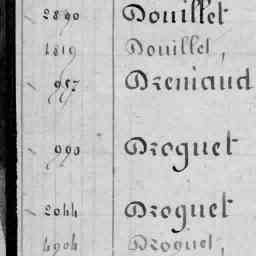 2890 Douillet
1819 Douillet,
957 Dreniaud
990 Droguet
2044 Droguet
4904 Droguet,